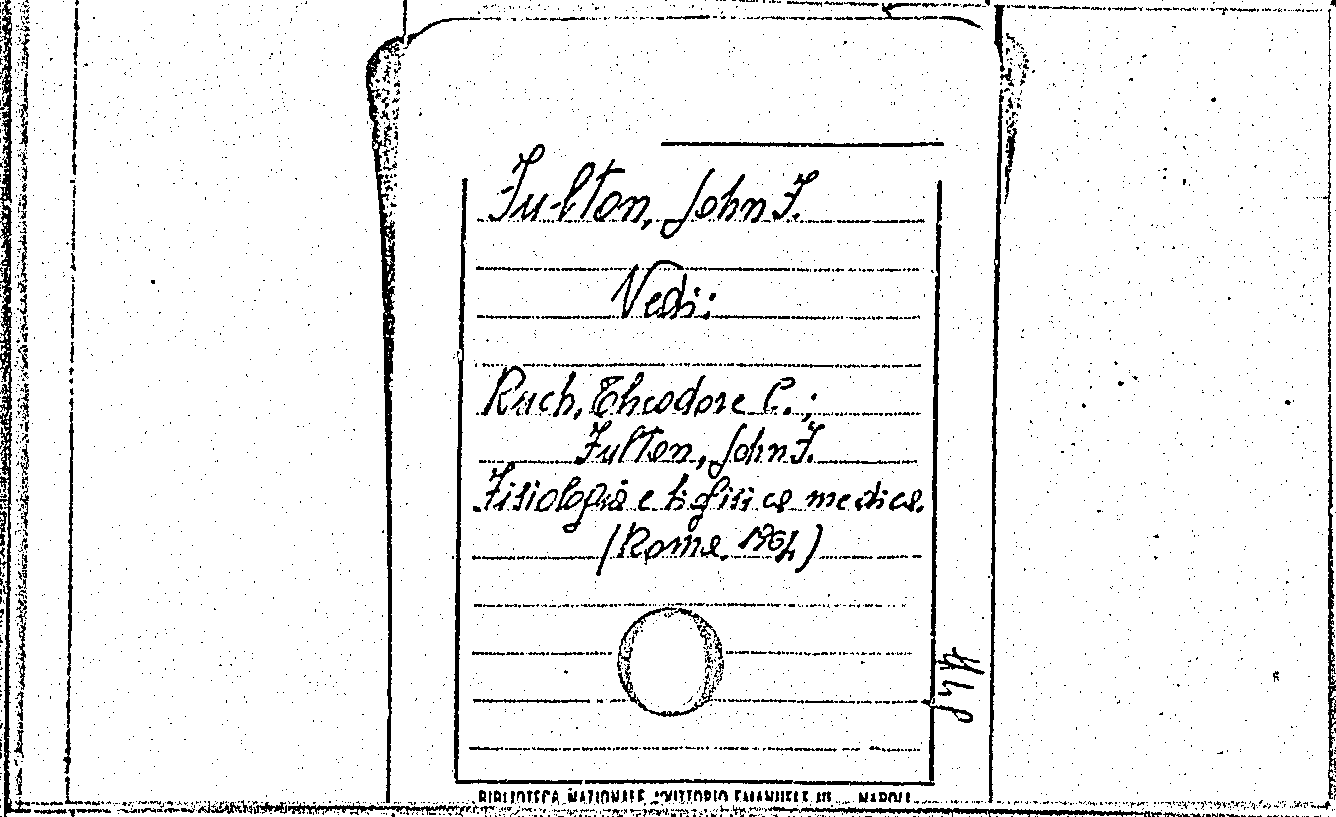 Fulton, John F.
Vedi:
Ruch, Theodore C.;
Fulton, John F.
Fisiologia e biofisica medica.
(Roma, 1964)
BIBLIOTECA NAZIONALE "VITTORIO EMANUELE III" - NAPOLI